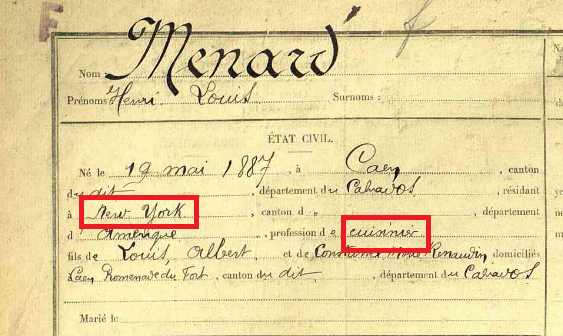 F
Nom Menard
Prénoms Henri Louis Surnoms :
ÉTAT CIVIL.
Né le 19 mai 1887, à Caen, canton
du dit, département du Calvados, résidant
à New York, canton d , département
d' Amérique, profession de cuisinier
fils de Louis, Albert et de Renaudin, domiciliés
Caen Promenade du Fort, canton du dit, département du Calvados
Marié le